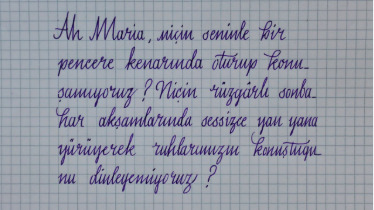 Ah Maria, niçin seninle bir
pencere kenarında oturup konu-
şamıyoruz? Niçin rüzgârlı sonba-
har akşamlarında sessizce yan yana
yürüyerek ruhlarımızın konuştuğu-
nu dinleyemiyoruz?